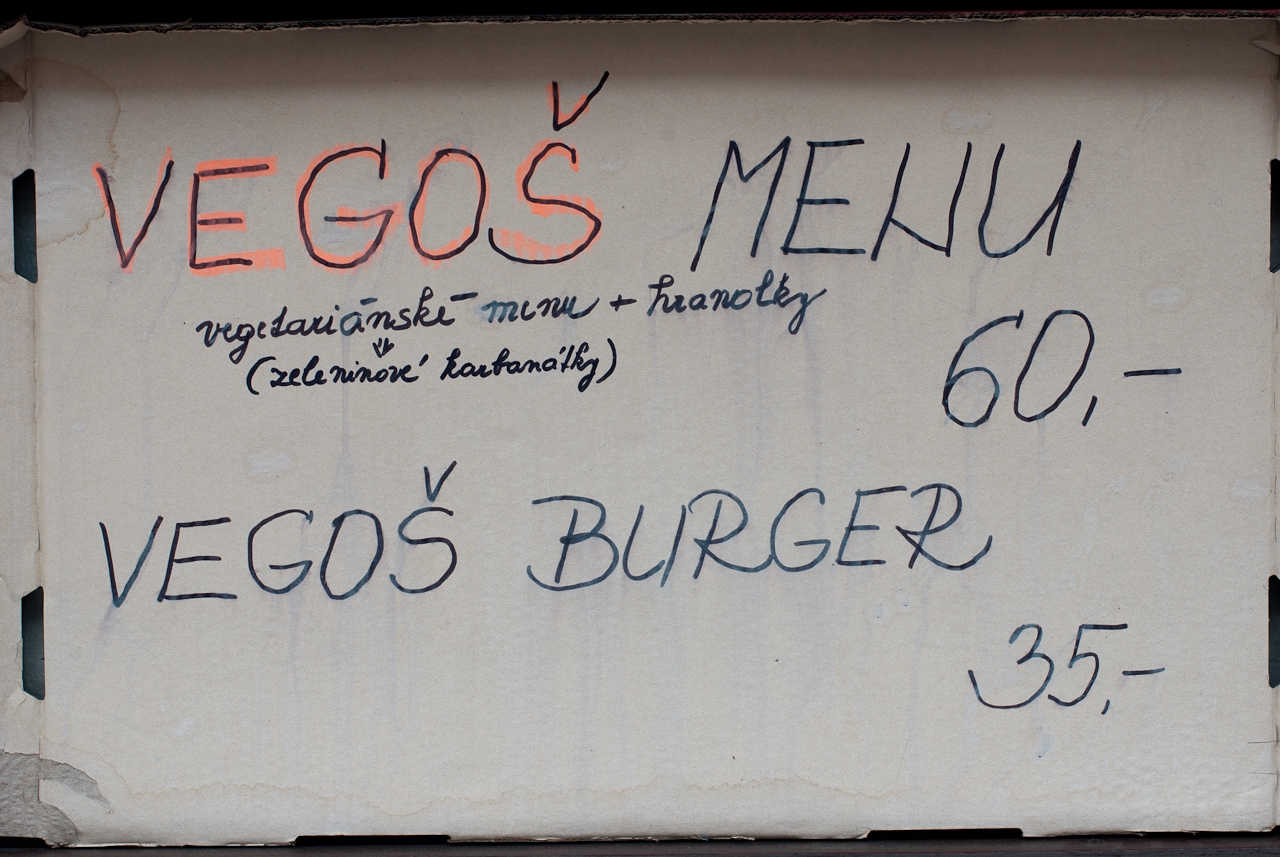 VEGOŠ MENU
vegetariánské menu + hranolky
(zeleninové karbanátky)
60,-
VEGOŠ BURGER
35,-